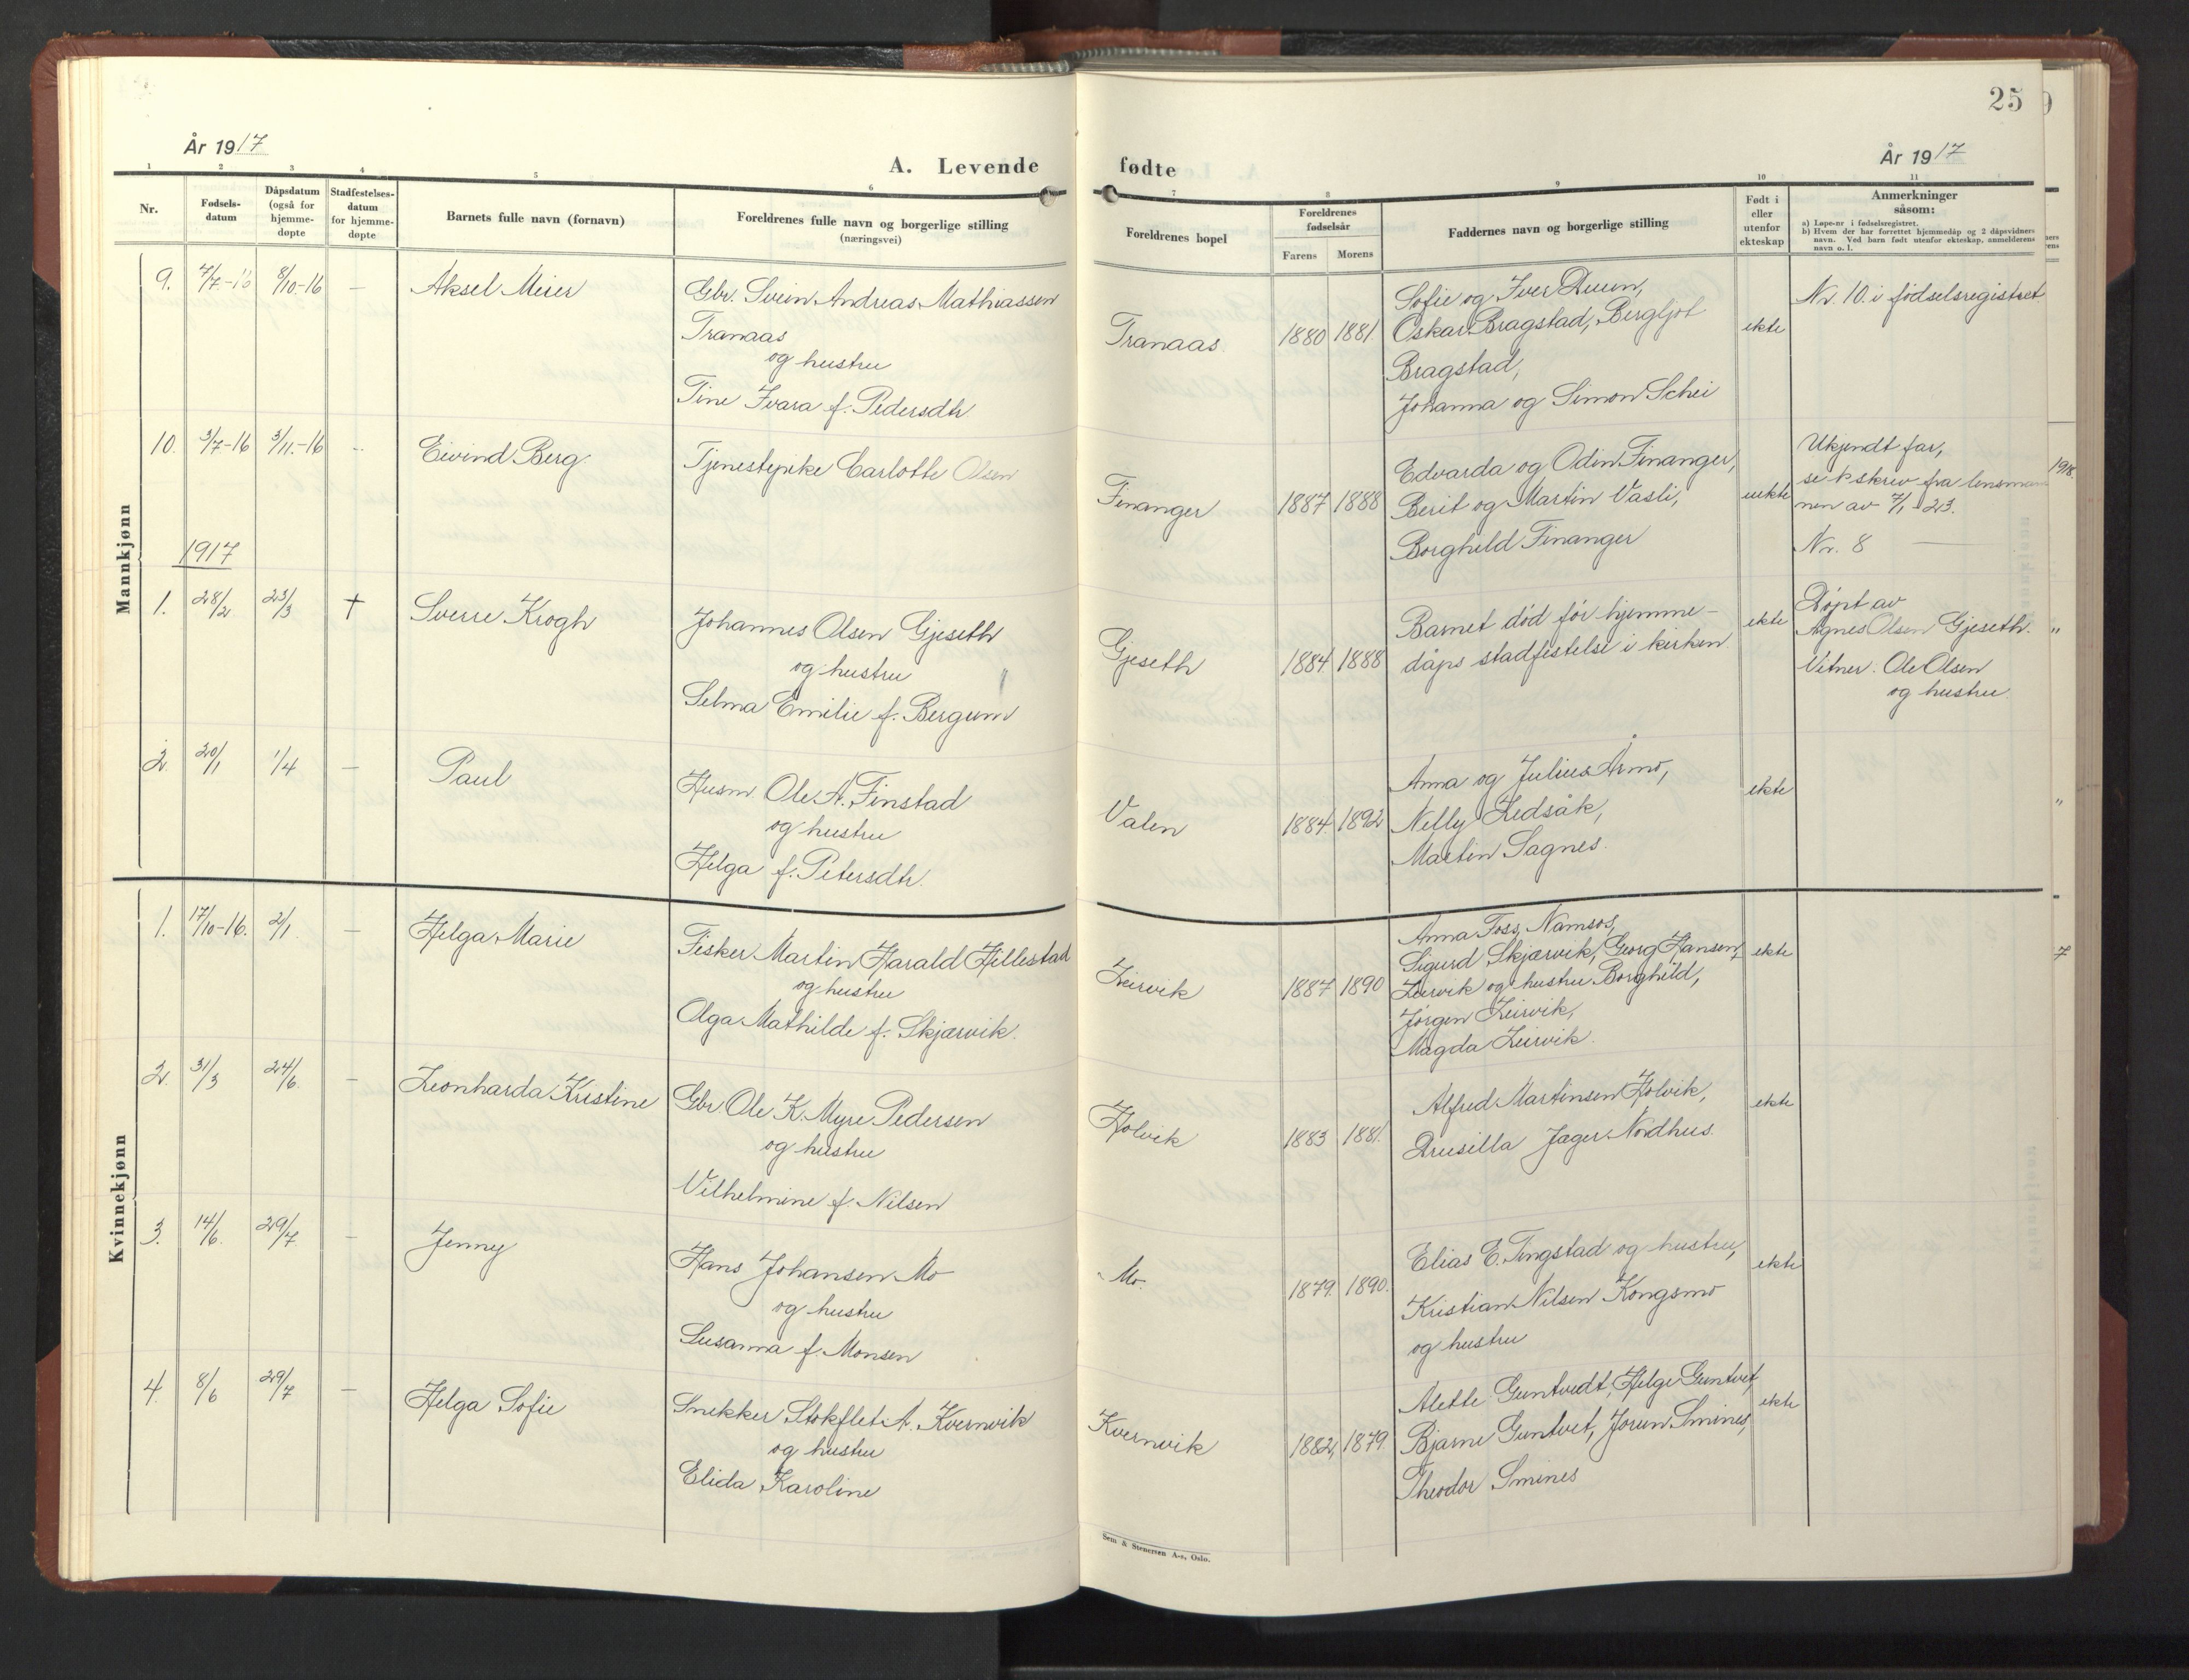 25
År 1917
År 1917
A. Levende
fødte
1 2 3 4 5 6
7 8 9 10 11
Nr.
Fødsels-
datum
Dåpsdatum
(også for
hjemme-
døpte
Stadfestelses-
datum
for hjemme-
døpte
Barnets fulle navn (fornavn)
Foreldrenes fulle navn og borgerlige stilling
(næringsvei)
Foreldrenes bopel
Foreldrenes
fødselsår
Farens Morens
Faddernes navn og borgerlige stilling
Født i
eller
utenfor
ekteskap
Anmerkninger
såsom:
a) Løpe-nr i fødselsregistret.
b) Hvem der har forrettet hjemmedåp og 2 dåpsvidners
navn. Ved barn født utenfor ekteskap, anmelderens
navn o. l.
Mannkjønn
9. 7/7-16 8/10-16 — Aksel Meier
Gbr. Svein Andreas Mathiassen
Tranaas
og hustru
Tine Ivara f. Pedersdtr
Tranaas 1880 1881.
Sofie og Iver Duun,
Oskar Bragstad, Bergljot
Bragstad,
Johanna og Simon Schei
ekte
Nr. 10. i fødselsregistret
10. 3/7-16 3/11-16 -- Eivind Berg.
Tjenestepike Carlotte Olsen
Finanger 1887 1888
Edvarda og Odin Finanger,
Berit og Martin Vasli,
Borghild Finanger
uekte
Ukjendt far,
se skriv fra lensman
nen av 7/1 - 23.
Nr. 8 —
1917
1. 28/2 23/3 † Sverre Krogh
Johannes Olsen Gjeseth
og hustru
Selma Emilie f. Bergum
Gjeseth 1884 1888
Barnet død før hjemme-
dåps stadfestelse i kirken
ekte
Døpt av
Agnes Olsen Gjeseth.
Vitner. Ole Olsen
og hustru.
2. 20/1 1/4 — Paul
Husm. Ole A. Finstad
og hustru
Helga f. Petersdtr.
Valen 1884 1892
Anna og Julius Årmo,
Nelly Ledsåk,
Martin Sagnes.
ekte
Kvinnekjønn
1. 17/10-16. 2/1. — Helga Marie
Fisker Martin Harald Hillestad
og hustru
Olga Mathilde f. Skjærvik.
Leirvik 1887 1890
Anna Foss, Namsos,
Sigurd Skjærvik, Georg Hansen,
Leirvik og hustru Borghild,
Jørgen Leirvik,
Magda Leirvik.
ekte
2. 31/3 24/6. — Leonharda Kristine
Gbr Ole K. Myre Pedersen
og hustru
Vilhelmine f. Nilsen
Holvik 1883 1881.
Alfred Martinsen Holvik,
Drusilla Jager Nordhus.
ekte
3. 14/6. 29/7. — Jenny
Hans Johansen Mo
og hustru
Susanna f. Monsen
Mo. 1879. 1890.
Elias E. Tingstad og hustru,
Kristian Nilsen Kongsmo
og hustru
ekte
4. 8/6 29/7 — Helga Sofie
Snekker Stokflet A. Kvernvik
og hustru
Elida Karoline
Kvernvik 1882, 1879.
Alette Guntvedt, Helge Guntvet,
Bjarne Guntvet, Jorun Smines,
Theodor Smines
ekte
Sem & Stenersen A-s, Oslo.